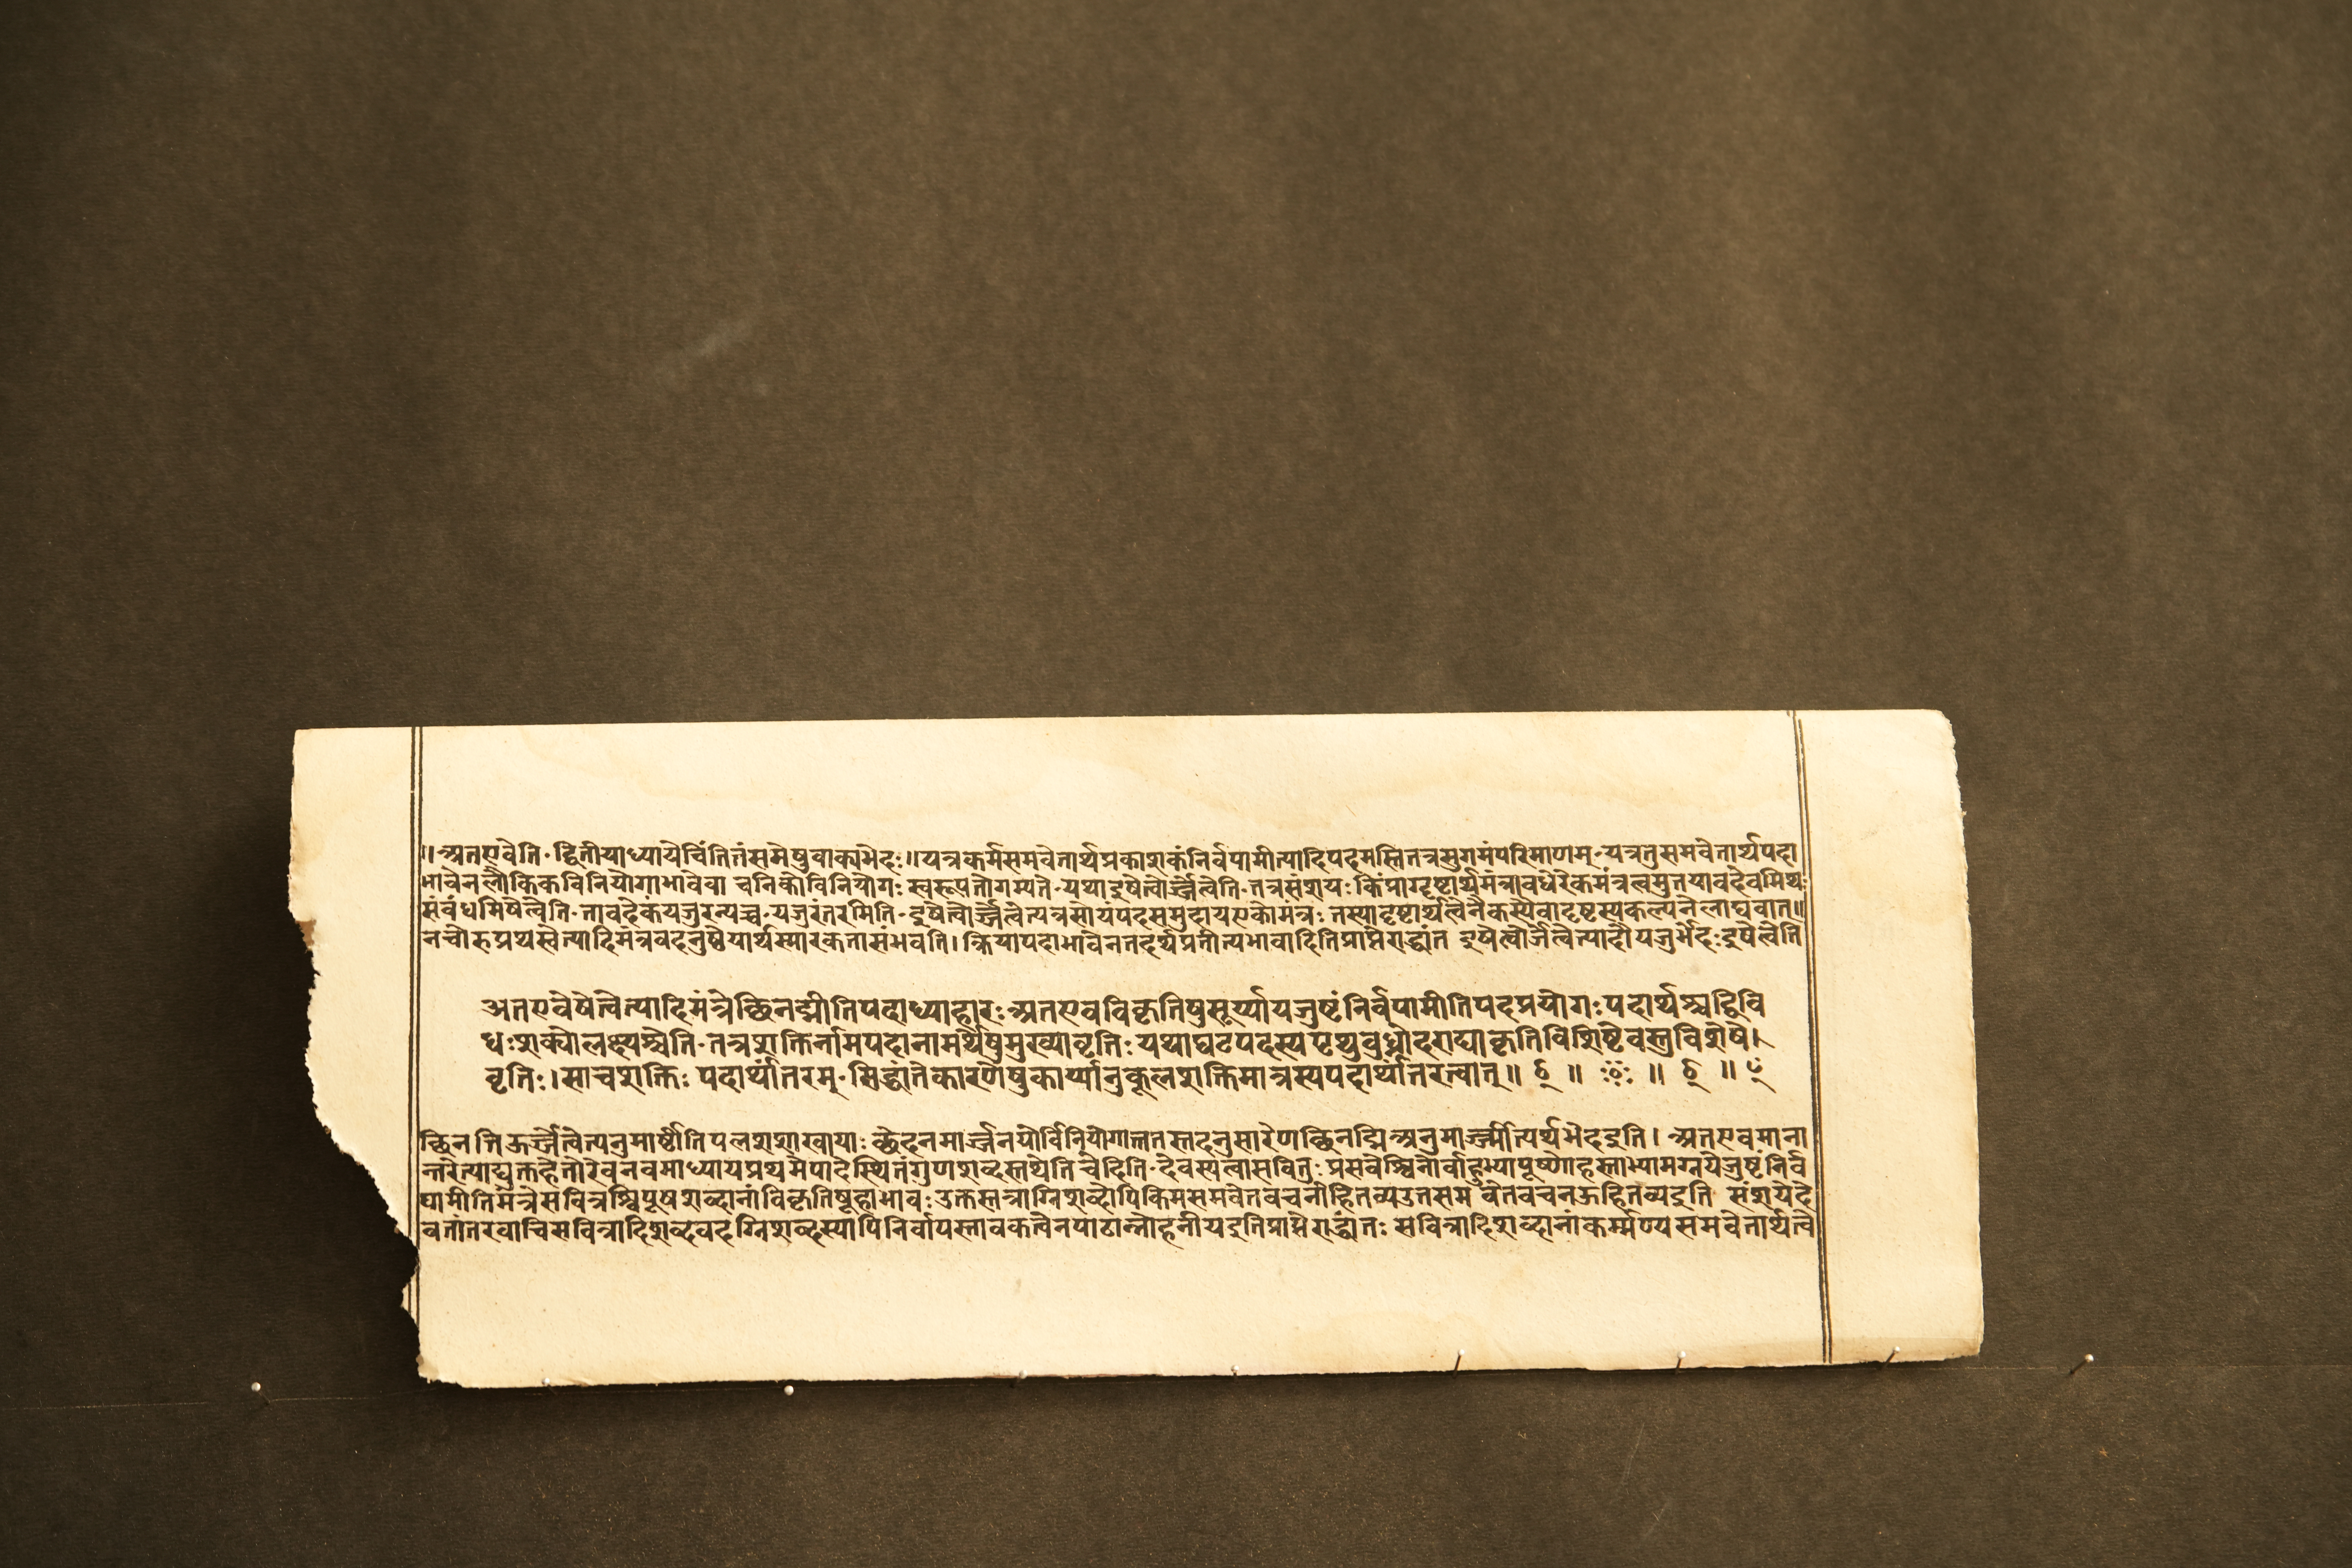 ॥अतएवेति·द्वितीयाध्यायेचिंतितंसमेषुवाक्यभेदः॥यत्रकर्मसमवेतार्थप्रकाशकंनिर्वपामीत्यादिपदमस्तितत्रसुगमंपरिमाणम्·यत्रतुसमवेतार्थपदा
भावेनलौकिकविनियोगाभावेवा चनिकोविनियोगः स्वरूपतोगम्यते·यथाइषेत्वोर्ज्जेत्वेति·तत्रसंशयः किंप्राग्दृष्टार्थमंत्रावधेरेकमंत्रत्वमुतयावदेवमिथः
संबंधमिषेत्वेति·तावदेकंयजुरन्यच्च·यजुरंतरमिति·इषेत्वोर्ज्जेत्वेत्यत्रसोयपदसमुदायएकोमंत्रः तस्यादृष्टार्थत्वेनैकस्यैवादृष्टस्यकल्पनेलाघवात्॥
नचोरुप्रथस्वेत्यादिमंत्रवदनुष्ठेयार्थस्मारकतासंभवति। क्रियापदाभावेनतदर्थप्रतीत्यभावादितिप्राप्तेराद्धांत इषेत्वोर्जेत्वेत्यादौयजुर्भेदः इषेत्वेति
अतएवेषेत्वेत्यादिमंत्रेच्छिनद्मीतिपदाध्याहारः अतएवविकृतिषुसूर्य्यायजुष्टंनिर्वपामीतिपदप्रयोगः पदार्थश्चद्विवि
धः शक्योलक्ष्यश्चेति·तत्रशक्तिर्नामपदानामर्थेषुमुख्यावृत्तिः यथाघटपदस्यपृथुबुध्नोदराद्याकृतिविशिष्टेवस्तुविशेषे।
वृत्तिः।साचशक्तिः पदार्थांतरम्·सिद्धांतेकारणेषुकार्य्यानुकूलशक्तिमात्रस्यपदार्थांतरत्वात्॥ ॥ ॥ ॥
च्छिनत्तिऊर्ज्जेत्वेत्यनुमार्ष्टीतिपलाशशाखायाः छेदनमार्ज्जनयोर्विनियोगात्ततस्तदनुसारेणछिनद्मिअनुमार्ज्मीत्यर्थभेदइति। अतएवमाना
न्तरेत्याद्युक्तहेतोरेवनवमाध्यायप्रथमेपादेस्थितंगुणशब्दस्तथेतिचेदिति·देवस्यत्वासवितुः प्रसवेश्विनोर्बाहुभ्यापूष्णोहस्ताभ्यामग्नयेजुष्टंनिर्व
पामीतिमंत्रेसवित्रश्विपूषशब्दानांविकृतिषूहाभावः उक्तस्तत्राग्निशब्दोपिकिमसमवेतवचनोहितव्यउतसम वेतवचनऊहितव्यइति संशयेदे
वतांतरवाचिसवित्रादिशब्दवदग्निशब्दस्यापिनिर्वापस्तावकत्वेनपाठान्नोहनीयइतिप्राप्तेराद्धांतः सवित्रादिशब्दानांकर्म्मण्यसमवेतार्थत्वे